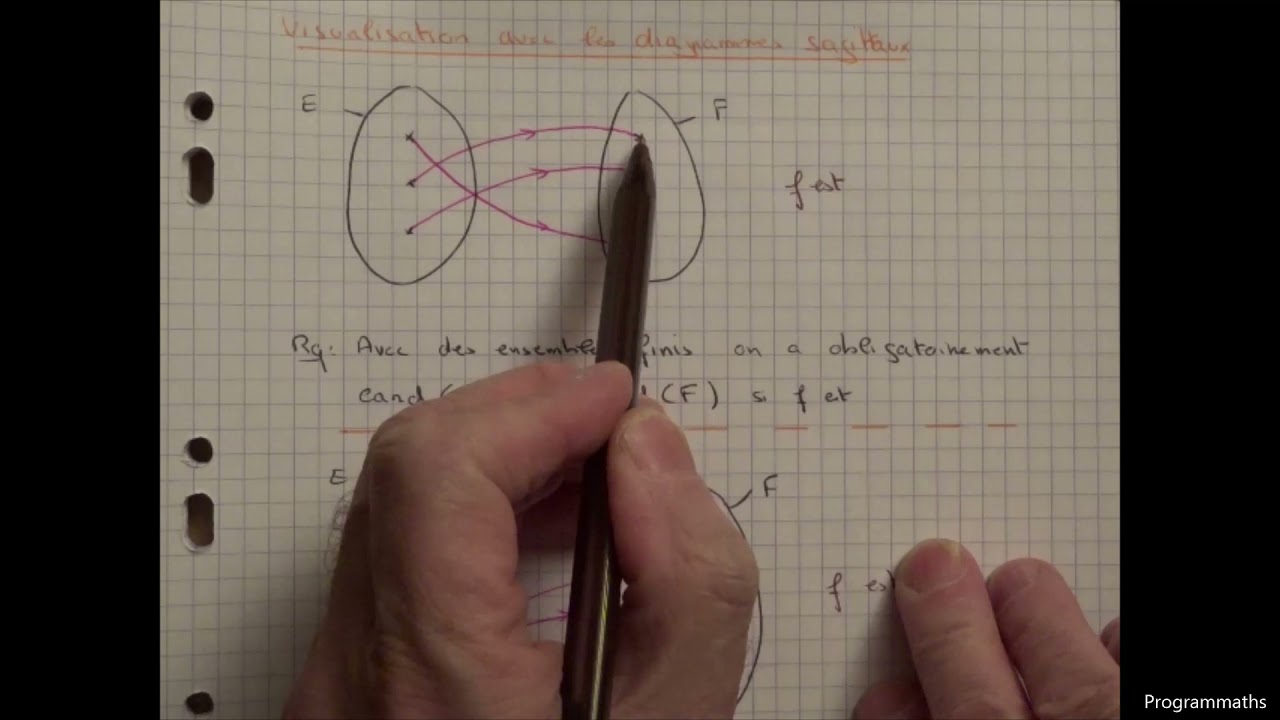 Visualisation avec les diagrammes sagittaux
E
F
f est
Rq: Avec des ensembles finis on a obligatoirement
card ( (F) si f est
E
F
f est
Programmaths